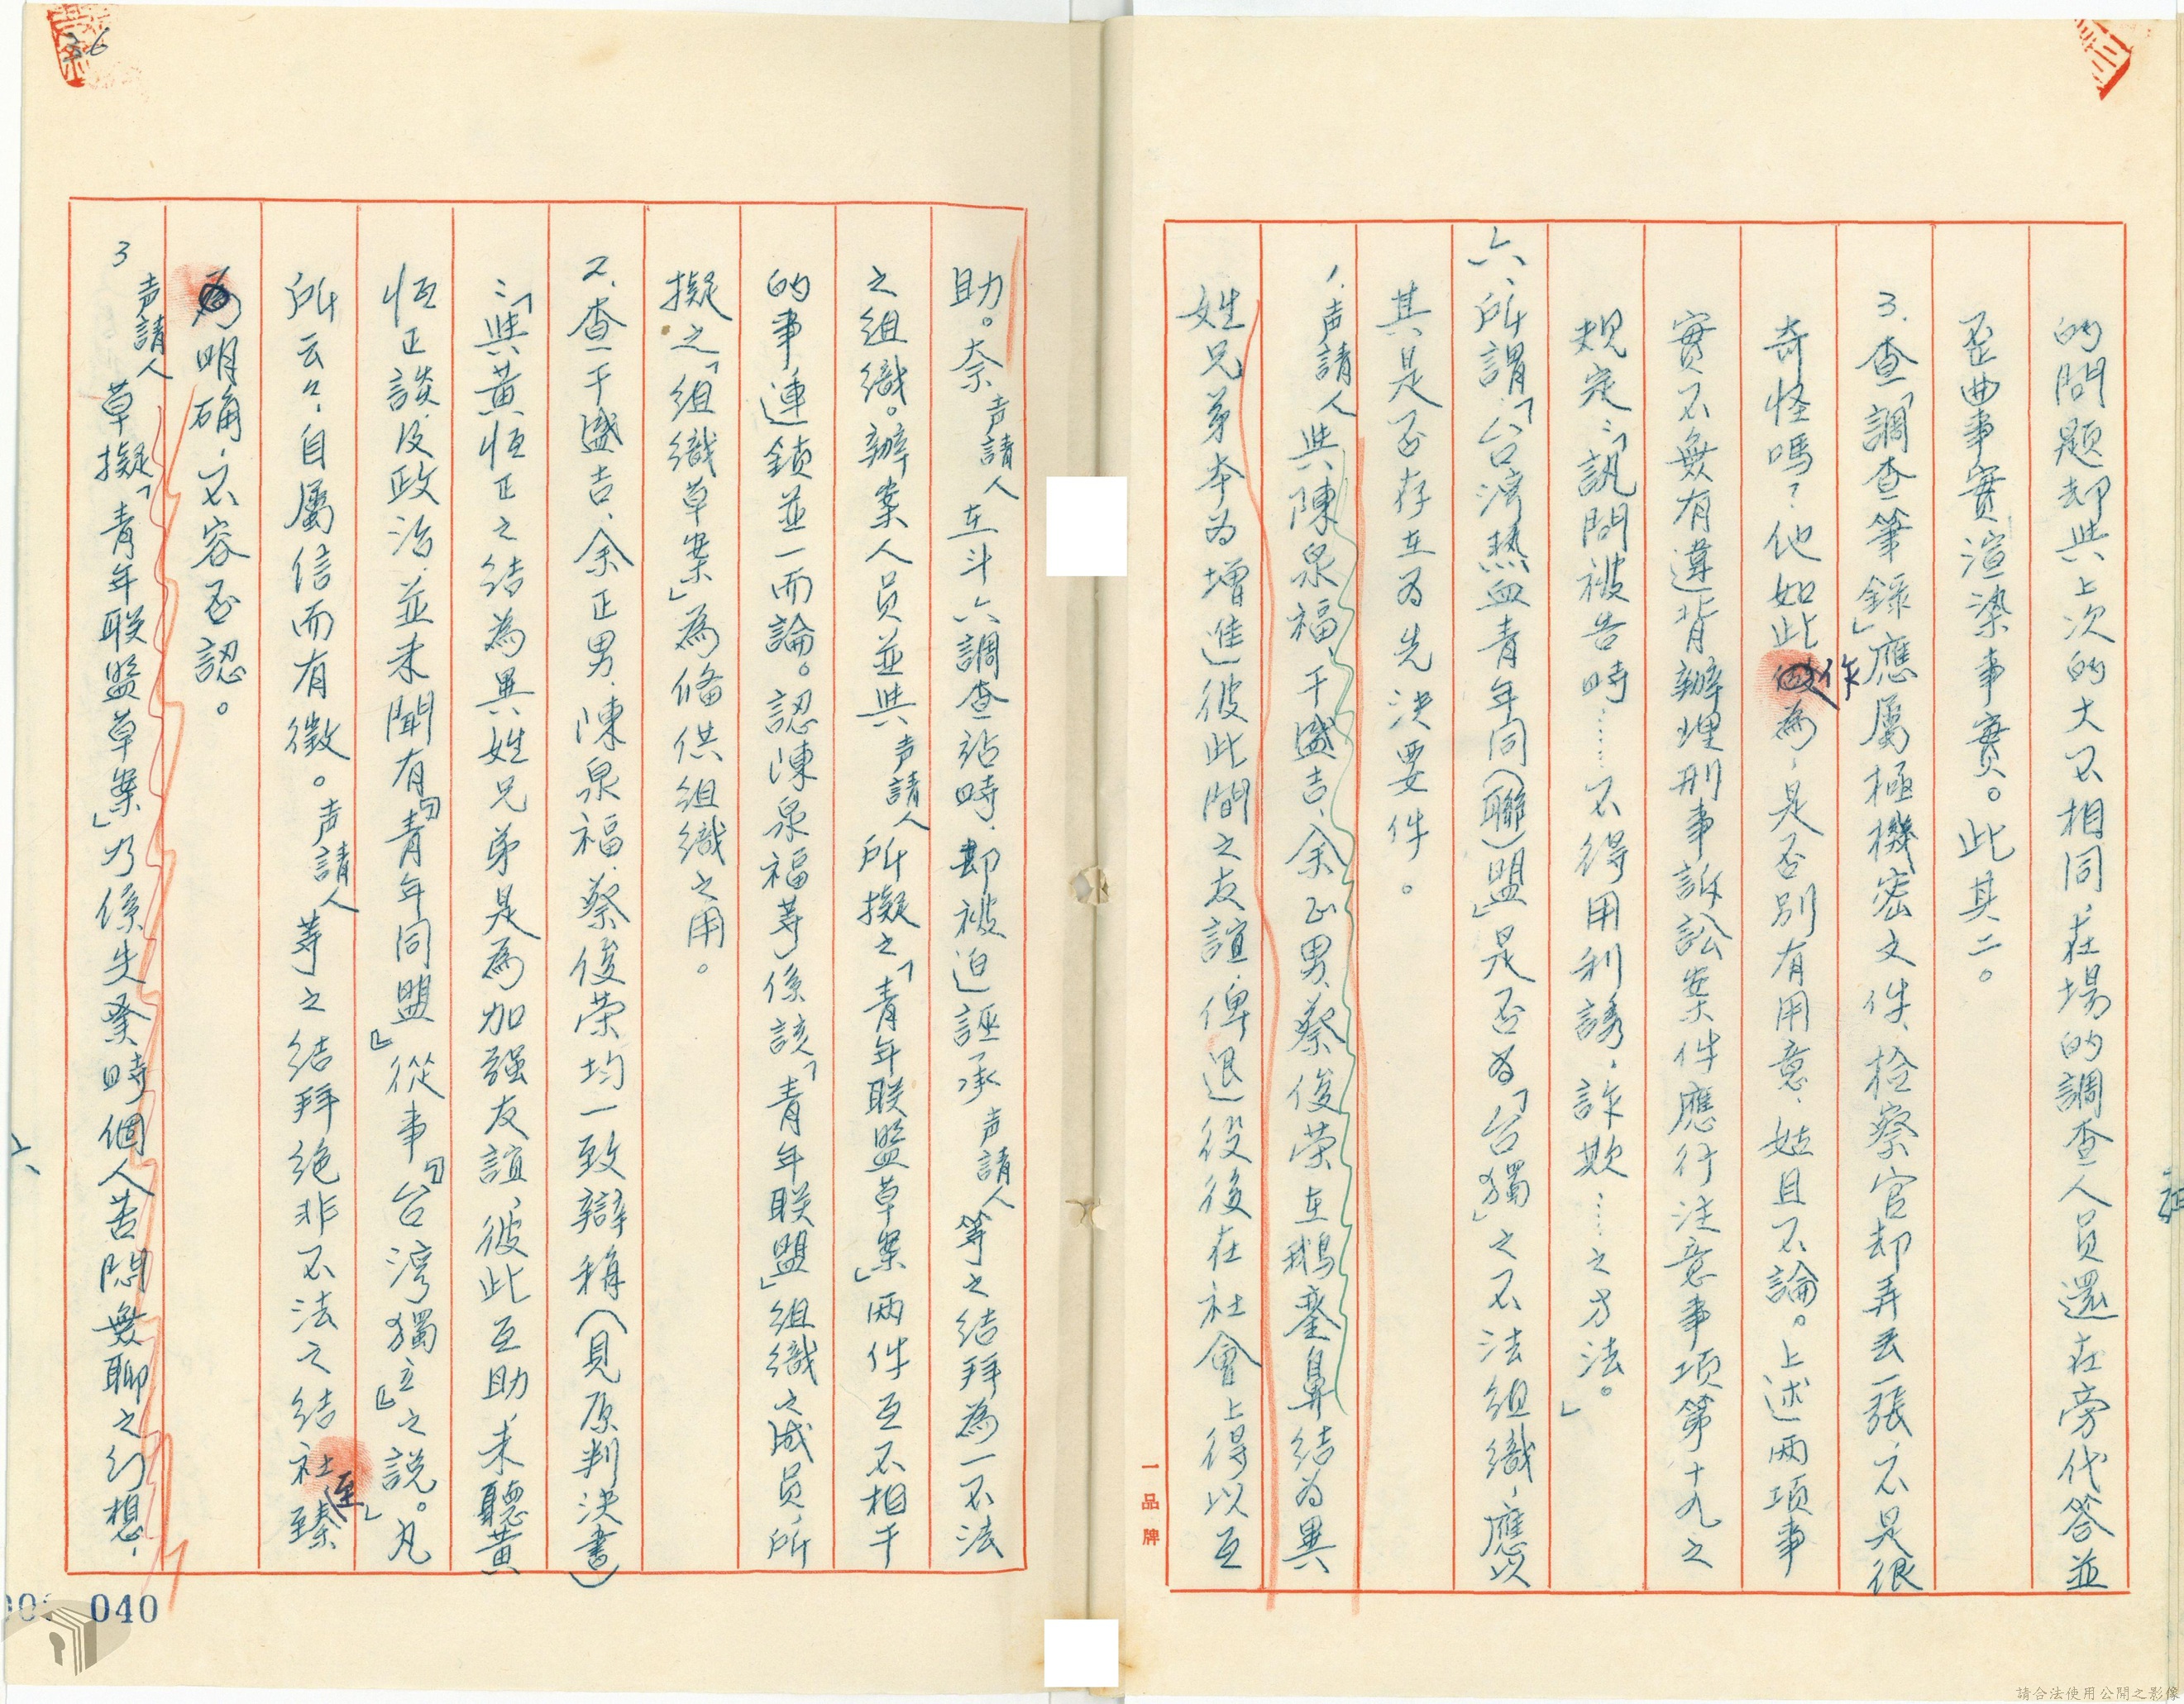 的問題却與上次的大不相同，在場的調查人員還在旁代答並
歪曲事實渲染事實。此其二。
3.查「調查筆錄」應屬極機密文件、檢察官却弄丟一張，不是很
奇怪嗎？他如此作為，是否別有用意，姑且不論。上述兩項事
實不無有違背辦理刑事訴訟案件應行注意事項第十九之
規定：「訊問被告時……不得用利誘，詐欺……之方法。」
六、所謂「台湾熱血青年同(聯)盟」是否為「台獨」之不法組織，應以
其是否存在為先決要件。
1.声請人與陳泉福、千盛吉、余正男、蔡俊荣在鵝鑾鼻結為異
姓兄弟本為增進彼此間之友誼，俾退役後在社會上得以互
助。奈声請人在斗六調查站時，却被迫誣承声請人等之結拜為一不法
之組織。辦案人員並與声請人所擬之「青年联盟草案」兩件互不相干
的事連鎖並一而論。認陳泉福等係該「青年联盟」組織之成員，所
擬之「組織草案」為俻供組織之用。
2.查千盛吉、余正男、陳泉福、蔡俊荣均一致辯稱(見原判決書)
：「與黃恒正之結為異姓兄弟是為加强友誼，彼此互助，未聽黃
恒正談及政治，並未聞有『青年同盟』從事『台湾獨立』之說。」凡
所云云，自屬信而有徵。声請人等之結拜絕非不法之結社至臻
明确，不容否認。
3 声請人草擬「青年联盟草案」乃係失業時個人苦悶無聊之幻想，
36
一品牌
040
請合法使用公開之影像